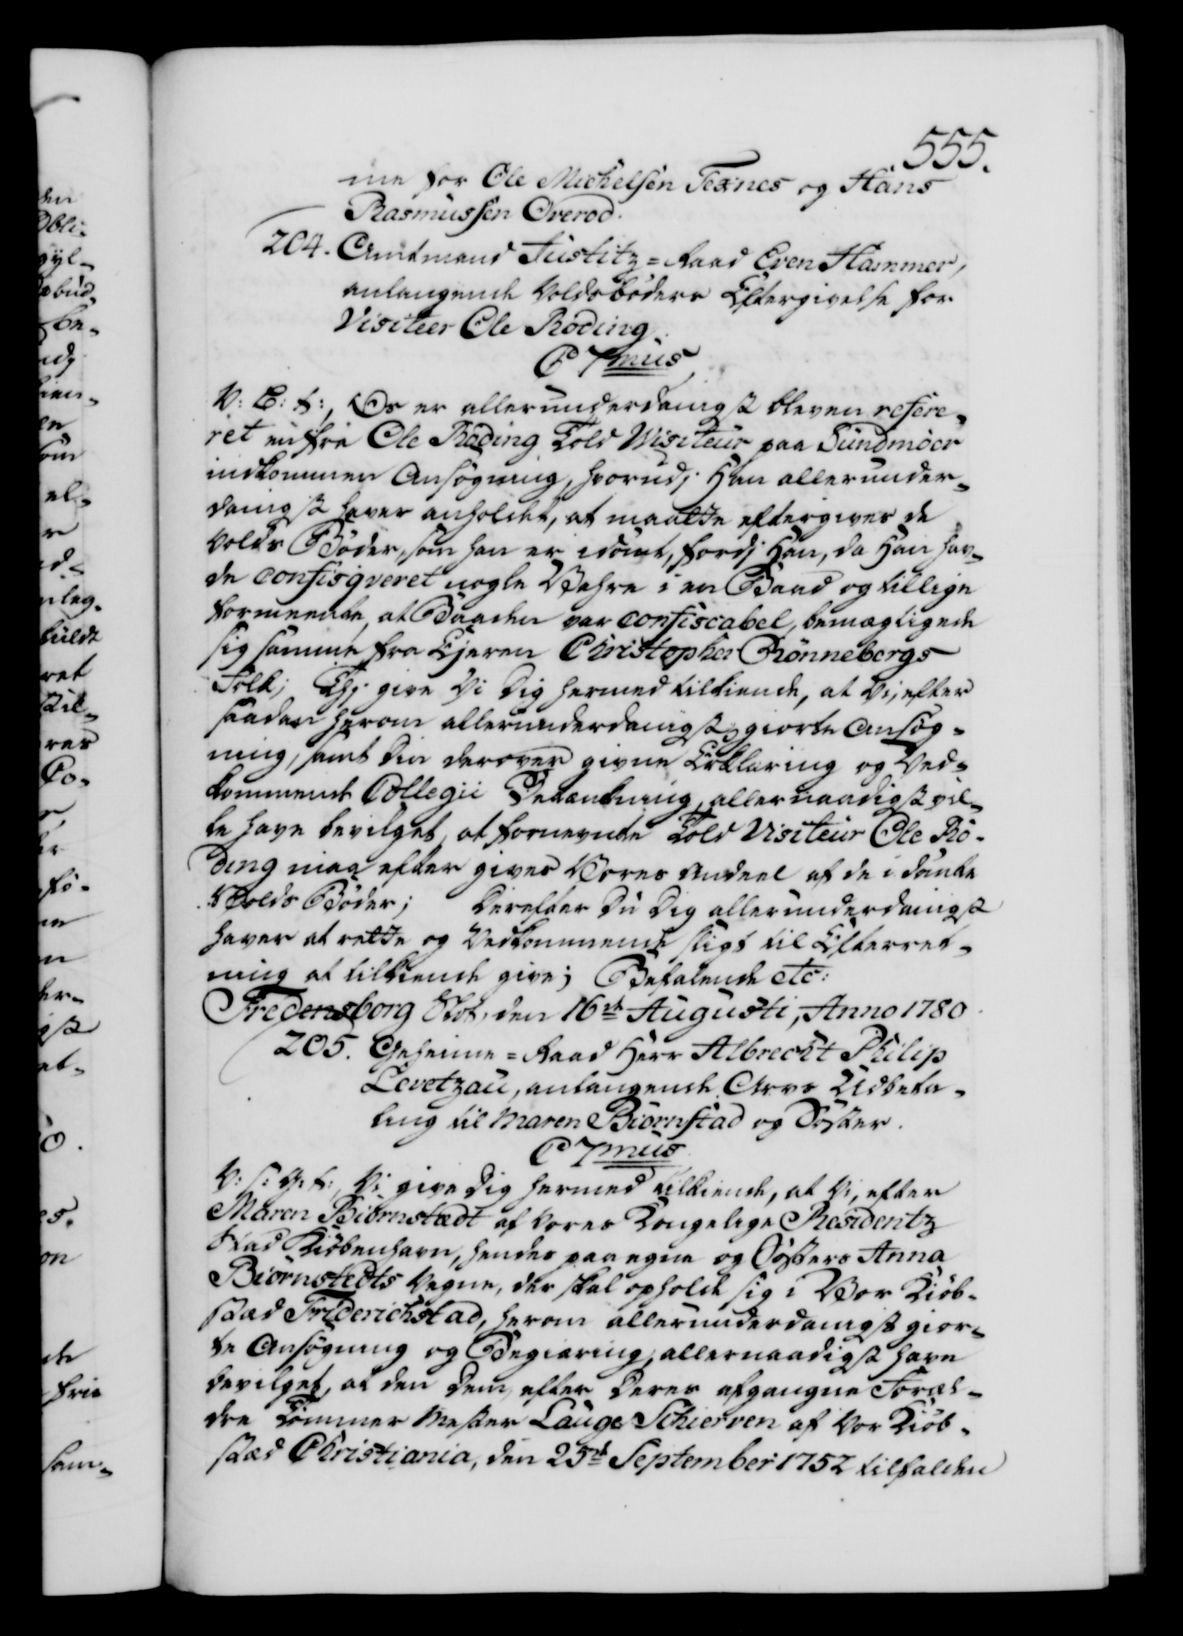 555.
me for Ole Michelsen Texnes og Hans
Rasmussen Overod.
204. Amtmand Justitz=Raad Even Hammer,
anlangende Voldsbøders Eftergivelse for
Visiteer Ole Røding.
C 7mus
V: G: T:, Os er allerunderdanigst bleven refere=
ret en fra Ole Røding Told Visiteur paa Sundmöer
indkommen Ansøgning, hvorudj Han allerunder=
danigst haver anholdet, at maatte eftergives de
Volds Bøder, som han er idømt, fordj Han, da Han hav=
de confisqveret nogle Vahre i en Baad og tillige
formeente, at Baaden var confiscabel, bemægtigede
sig samme fra Ejeren Christopher Rønnebergs
Folk; Thj give Vi Dig hermed tilkiende, at Vi, efter
saadan herom allerunderdanigst giorte Ansøg=
ning, samt Din derover givne Erklæring og Ved=
kommende Collegii Betænkning, allernaadigst vil=
le have bevilget, at fornevnte Told Visiteur Ole Rö=
ding maa efter gives Vores Andeel af de idømte
Volds Bøder; Derefter Du Dig allerunderdanigst
haver at rette og Vedkommende sligt til Efterret=
ning at tilkiende give; Befalende etc:
Fredensborg Slot, den 16de Augusti, Anno 1780.
205. Geheime=Raad Herr Albrecht Philip
Levetzau, anlangende Arvs Udbeta=
ling til Maren Biørnstad og Søster.
C 7mus
Vi give Dig hermed tilkiende, at Vi, efter
Maren Biörnstedt af Vores Kongelige Residentz
Stad Kiöbenhavn, hendes paa egne og Søsters Anna
Biörnstedts Vegne, der skal opholde sig i Vor Kiöb=
stæd Friderichstad, herom allerunderdanigst gior=
te Ansøgning og Begiæring, allernaadigst have
bevilget, at den Dem, efter Deres afgangne Foræl=
dre Tømmer Mester Lauge Schierven af Vor Kiöb=
stæd Christiania, den 25de September 1752 tilfalden